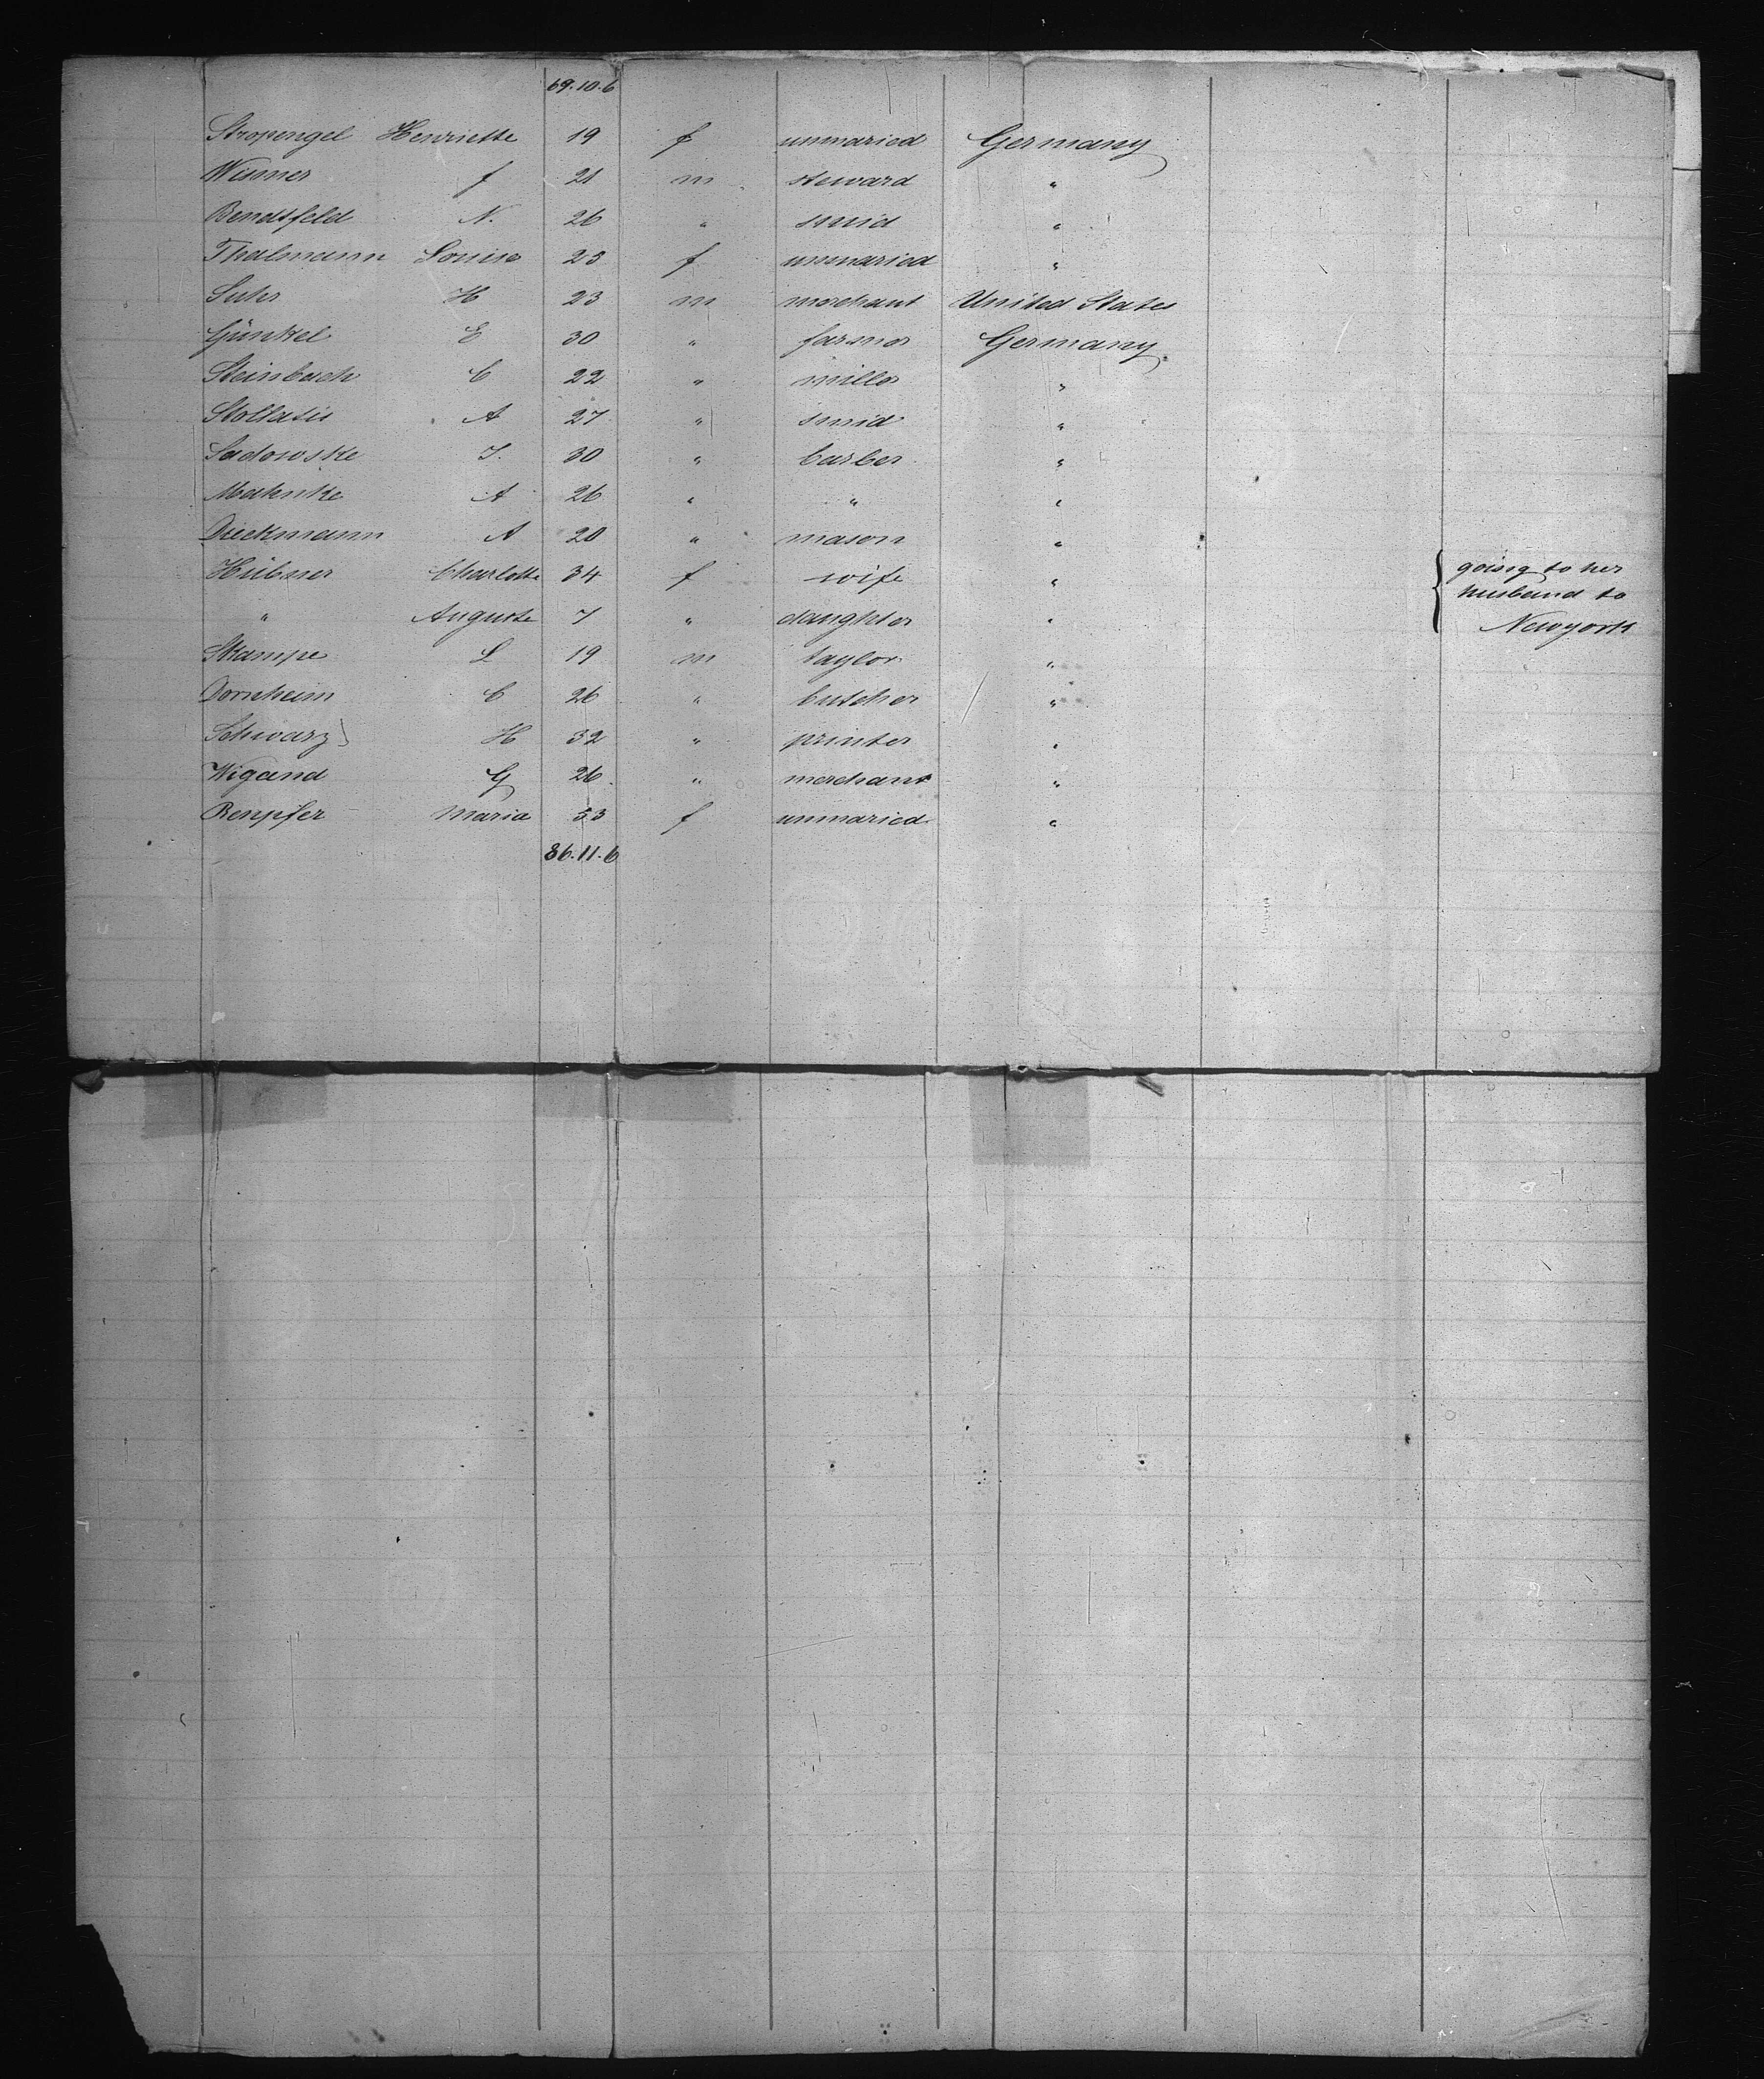 69.10.6
Stropengel Henriette 19 f unmaried Germany
Wismer J 21 m steward "
Bendtfeld N. 26 " smid "
Thalmann Louise 23 f unmaried "
Suhr H 23 m merchant United States
Günkel E 30 " farmer Germany
Steinbach C 22 " miller "
Stollasis A 27 " smid "
Sadowske J. 30 " barber "
Mahnke A 26 " " "
Dieckmann A 20 " mason "
Hübner Charlotte 34 f wife " { going to her
" Auguste 7 " daughter " husband to
Newyork
Stampe L 19 m taylor "
Dornheim C 26 " butcher "
Schwarz H 32 " printer "
Wigand G 26 " merchant "
Benpfer Maria 53 f unmaried "
86.11.6